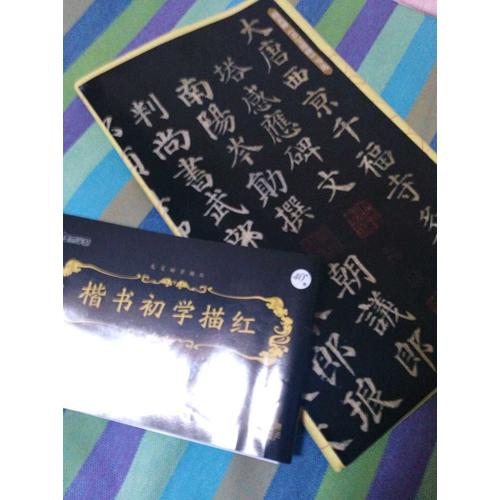 大唐西京千福寺多
塔感應碑文
南陽岑勛撰 朝議郎
判尚書武部 郎琅
楷书初学描红